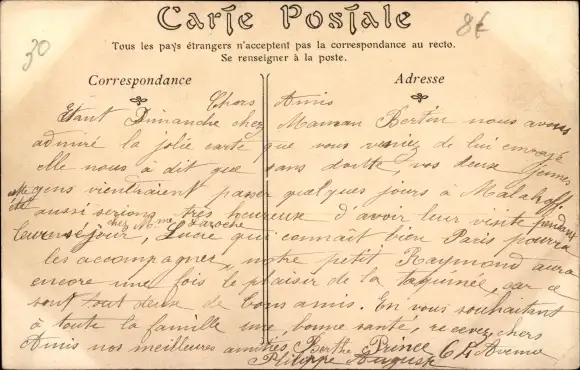 Carte Postale
30
8€
Tous les pays étrangers n'acceptent pas la correspondance au recto.
Se renseigner à la poste.
Correspondance
Adresse
Chers Amis
Etant Dimanche chez Maman Bertin nous avons
admiré la jolie carte que vous veniez de lui envoyé
elle nous à dit que sans doute vos deux jeunes
gens viendraient passer quelques jours à Malakoff
aussi serions très heureux d'avoir leur visite pendant
chez Mme Laroche
leur séjour, Lucie qui connaît bien Paris pourra
les accompagner, notre petit Raymond aura
encore une fois le plaisir de la taquinée, car ce
sont tout deux de bons amis. En vous souhaitant
à toute la famille une bonne santé, recevez chers
Amis nos meilleures amitiés Berthe Prince 64 Avenue
Philippe Auguste